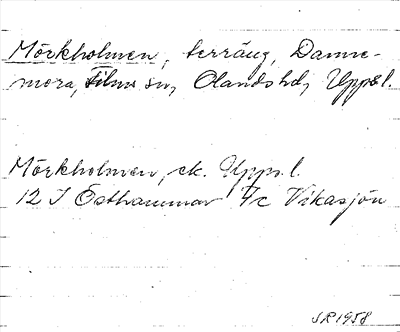 Mörkholmen, terräng, Danne-
mora, Films sn, Olands hd, Upps. l.
Mörkholmen, ek. Upps. l.
12 I Östhammar 7/c Vikasjön
SR 1958